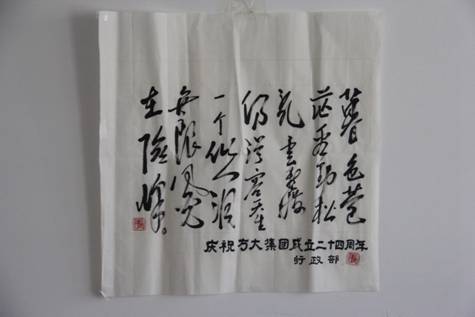 暮色蒼
茫看勁松
乱雲飛渡
仍從容天生
一个仙人洞
無限風光
在險峰
庆祝方大集团成立二十四周年
行政部